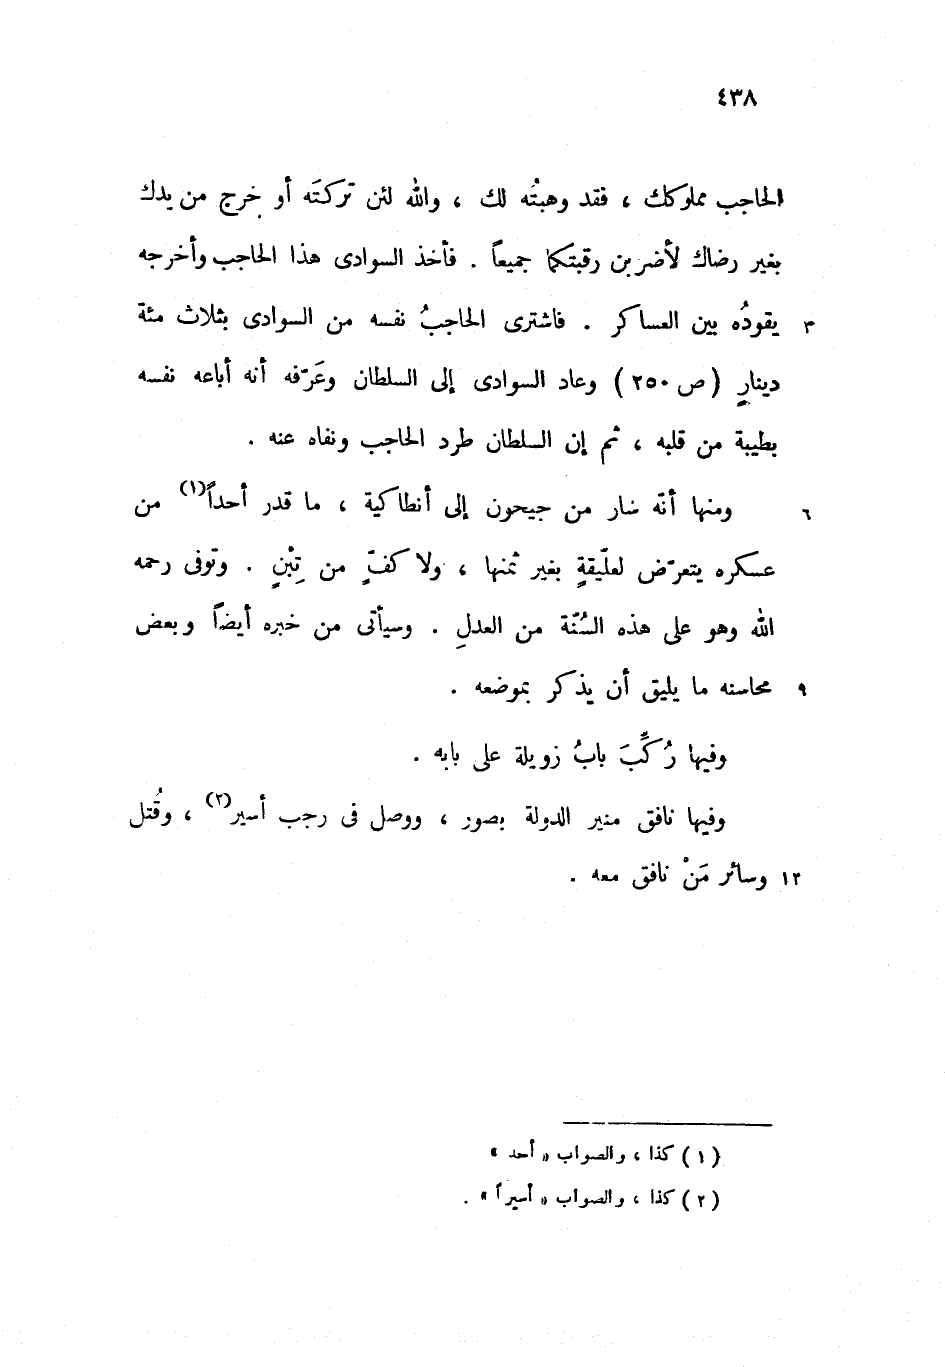 ٤٣٨
الحاجب مملوكك ، فقد وهبتُه لك ، والله لئن تركتَه أو خرج من يدك
بغير رضاك لأضربن رقبتكما جميعاً . فأخذ السوادى هذا الحاجب وأخرجه
٣ يقودُه بين العساكر . فاشترى الحاجبُ نفسه من السوادى بثلاث مئة
دينارٍ (ص ٢٥٠) وعاد السوادى إلى السلطان وعَرّفه أنه أباعه نفسه
بطيبة من قلبه ، ثم إن السلطان طرد الحاجب ونفاه عنه .
٦ ومنها أنّه سار من جيحون إلى أنطاكية ، ما قدر أحداً(١) من
عسكره يتعرّض لعلّيقةٍ بغير ثمنها ، ولا كفّ من تِبْنٍ . وتوفى رحمه
الله وهو على هذه السُنّة من العدلِ . وسيأتى من خبره أيضاً وبعض
٩ محاسنه ما يليق أن يذكر بموضعه .
وفيها رُكِّبَ بابُ زويلة على بابه .
وفيها نافق منير الدولة بصور ، ووصل فى رجب أسير(٢) ، وقُتل
١٢ وسائر مَنْ نافق معه .
(١) كذا ، والصواب « أحد »
(٢) كذا ، والصواب « أسيراً » .